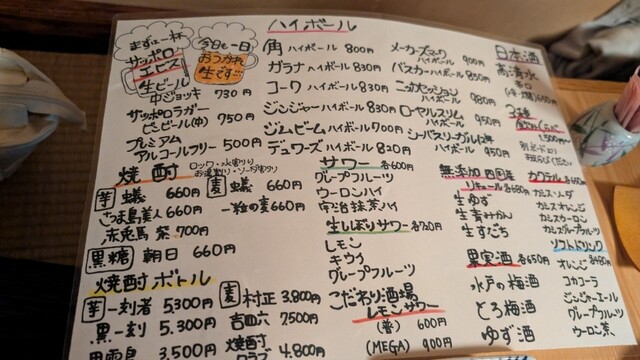 まずは一杯
サッポロ
エビス
生ビール
中ジョッキ 730円
サッポロラガー
ビンビール(中) 750円
プレミアム
アルコールフリー 500円
今日も一日
おつかれ
生です…
焼酎 ロック・水割り
お湯割り・ソーダ割り
芋 蟻 660円
さつま島美人 660円
赤兎馬 紫 700円
麦 蟻 660円
一粒の麦 660円
黒糖 朝日 660円
焼酎ボトル
芋 一刻者 5,300円
黒一刻 5,300円
3,500円
麦 村正 3,800円
吉四六 7,500円
焼酎
4,800円
ハイボール
角 ハイボール 800円
ガラナ ハイボール 830円
コーク ハイボール 830円
ジンジャー ハイボール 830円
ジムビーム ハイボール 700円
デュワーズ ハイボール 820円
メーカーズマーク
ハイボール 900円
バスカー ハイボール 850円
ニッカセッション
ハイボール 980円
ローヤルスリム
ハイボール 950円
シーバスリーガル12年
ハイボール 950円
サワー 各600円
グレープフルーツ
ウーロンハイ
宇治抹茶ハイ
生しぼりサワー 各720円
レモン
キウイ
グレープフルーツ
こだわり酒場
レモンサワー
600円
(MEGA) 900円
日本酒
高清水
辛口
650円
3種
飲みくらべ
1,500円
無添加 四国産
リキュール 各680円
生ゆず
生青みかん
生すだち
果実酒 各650円
水戸の梅酒
とろ梅酒
ゆず酒
カクテル
カシスソーダ
カシスオレンジ
カシスウーロン
カシスグレープフルーツ
ソフトドリンク
オレンジ 各480円
コカコーラ
ジンジャーエール
グレープフルーツ
ウーロン茶